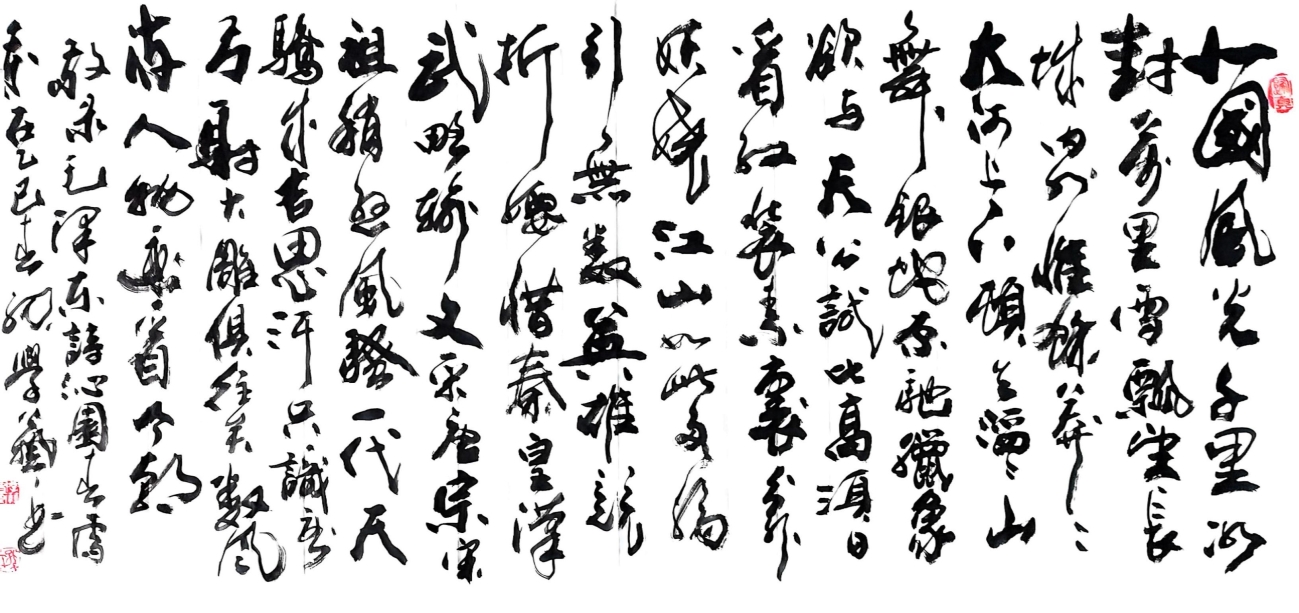 北國風光千里冰
封萬里雪飄望長
城内外惟餘莽々
大河上下頓失滔々山
舞銀蛇原馳蠟象
欲与天公試比高須日
看红裝素裹分外
妖嬈江山如此多嬌
引無数英雄競
折腰惜秦皇漢
武略輸文采唐宗宋
祖稍遜風騷一代天
驕成吉思汗只識弯
弓射大雕俱往矣数風
流人物還看今朝
敬录毛澤东詩沁園春雪
歲在乙巳春 學藝書